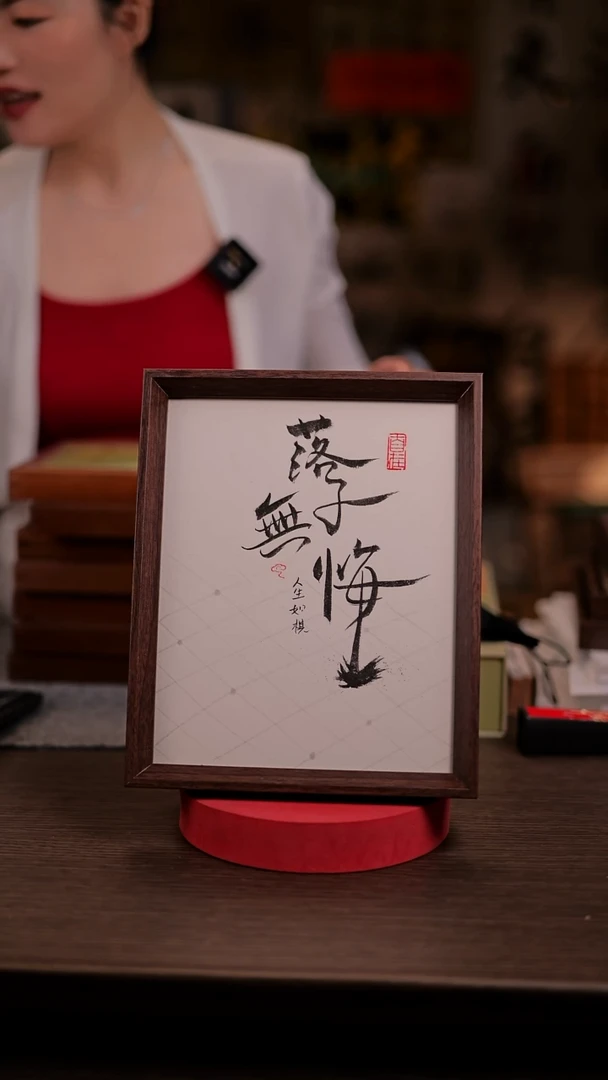 落子
無悔
人生如棋